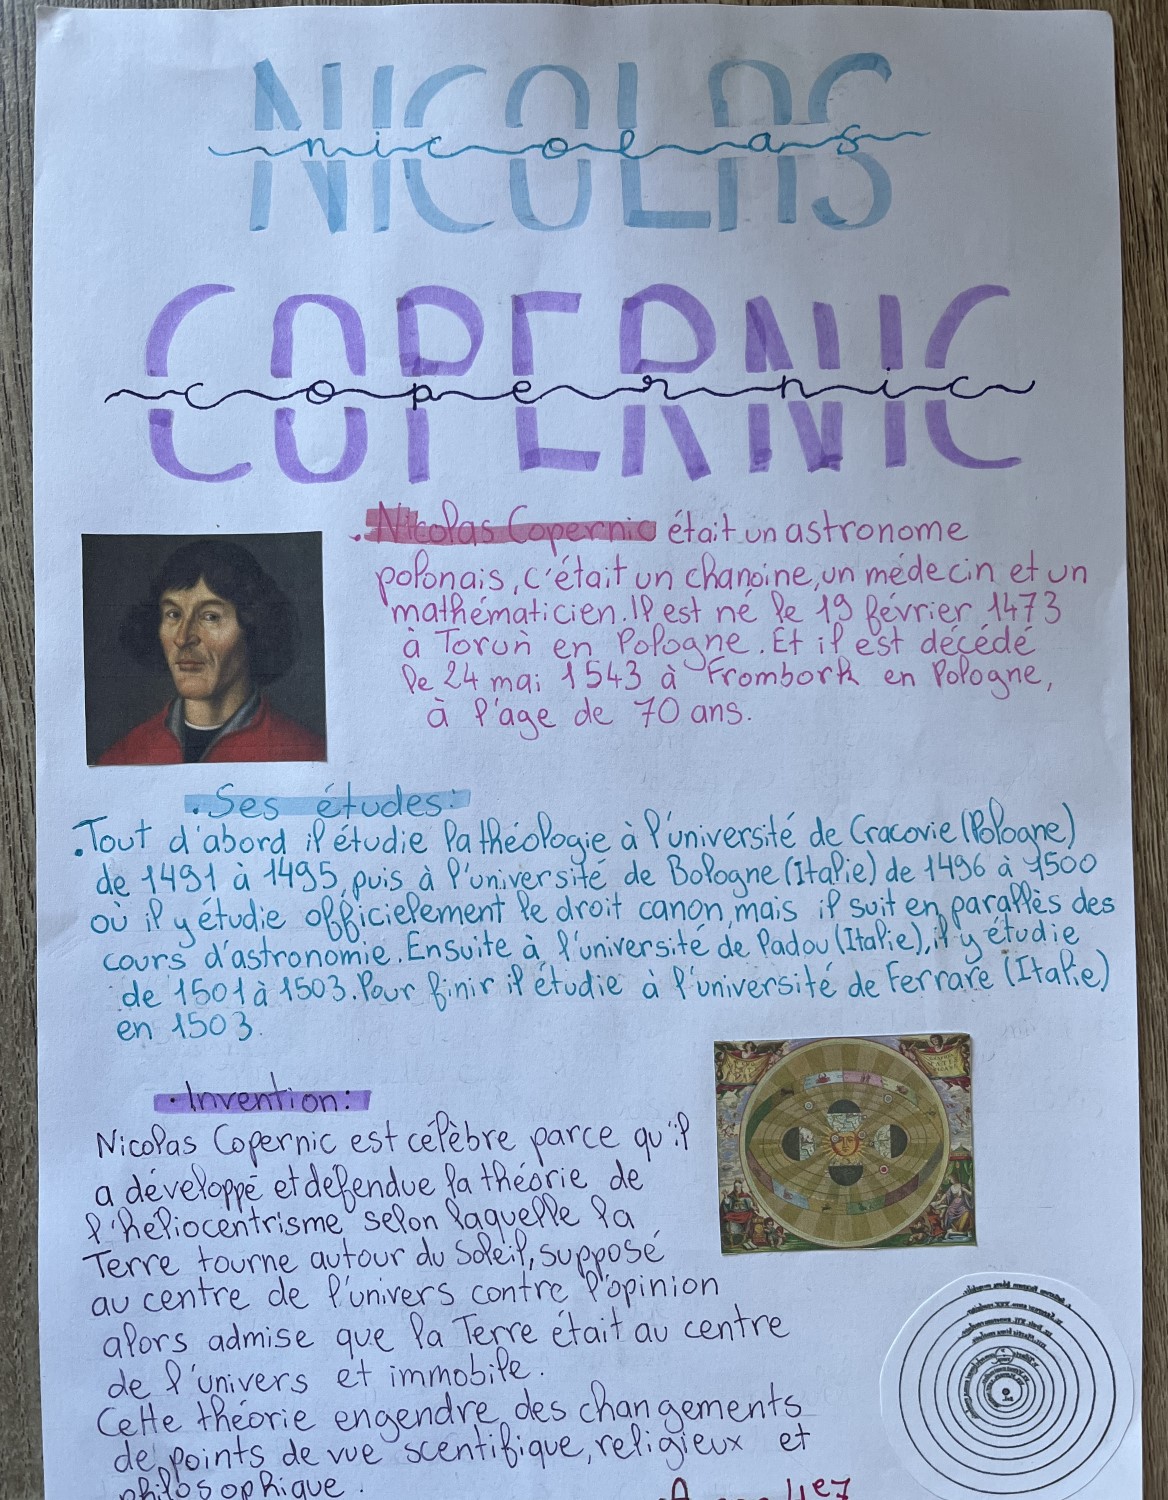 NICOLAS
nicolas
COPERNIC
copernic
. Nicolas Copernic était un astronome
polonais, c'était un chanoine, un médecin et un
mathématicien. Il est né le 19 février 1473
à Toruǹ en Pologne. Et il est décédé
le 24 mai 1543 à Frombork en Pologne,
à l'âge de 70 ans.
. Ses études:
. Tout d'abord il étudie la théologie à l'université de Cracovie (Pologne)
de 1491 à 1495, puis à l'université de Bologne (Italie) de 1496 à 1500
où il y étudie officielement le droit canon, mais il suit en parallès des
cours d'astronomie. Ensuite à l'université de Padou (Italie), il y étudie
de 1501 à 1503. Pour finir il étudie à l'université de Ferrare (Italie)
en 1503.
. Invention:
Nicolas Copernic est célèbre parce qu'il
a développé et défendue la théorie de
l'héliocentrisme selon laquelle la
Terre tourne autour du Soleil, supposé
au centre de l'univers contre l'opinion
alors admise que la Terre était au centre
de l'univers et immobile.
Cette théorie engendre des changements
de points de vue scentifique, religieux et
philosophique.
4e7